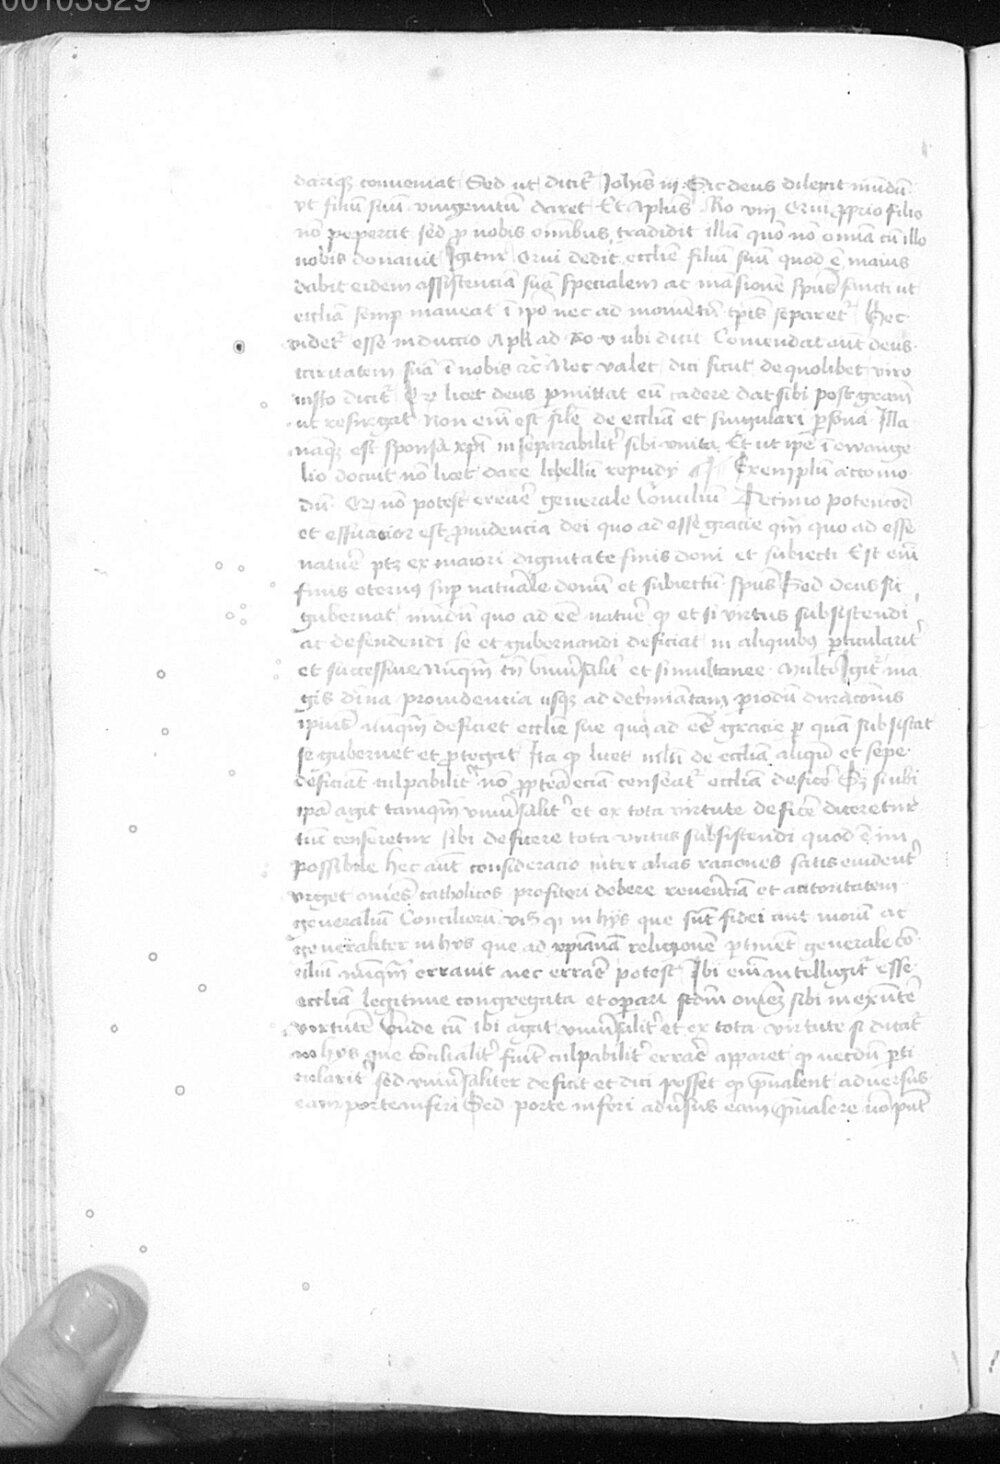 00103329
darique conveniat Sed ut dicit᷒ Johīs iij Sic deus dilexit mūdū
vt filiū suū vnigenitū daret Et Aplūs Ro viij Qui ꝓprio filio
nō pepercit sed ꝓ nobis omībus tradidit illū quō nō omīa cū illo
nobis donavit Igitur Qui dedit ecclīe filiū suū quod ē maius
dabit eidem assistenciam suā specialem ac māsionē spūs sancti ut
ecclīa semp maneat ī ipō nec ad momentū tpīs separet᷒ Hec
videt᷒ esse inductio Apli ad Ro v ubi dicit Comendat aūt deus
caritatem suā ī nobis ⁊c̄ Nec valet dici sicut de quolibet viro
iusto dicit᷒ Qꝫ licet deus ꝑmittat eū cadere dat sibi post grām
ut resurgat Non em̄ est sīle de ecclīa et singulari ꝑsona Illa
nāqꝫ est sponsa xp̄i inseparabilit᷒ sibi vnita Et ut ipē ī ewange
lio docuit nō licet dare libellū repudij Exemplū accomo
dū Qꝫ nō potest errare generale Conciliū Decimo potencior
et efficacior est ꝓvidencia dei quo ad esse gracie qm̄ quo ad esse
nature ptꝫ ex maiori dignitate finis doni et subiecti Est em̄
finis eternus sup naturale donū et subiectū spūs Sed deus sic
gubernat mūdū quo ad eē nature qꝫ et si virtus subsistendi
ac defendendi se et gubernandi deficiat in aliquibꝫ ꝑticularit᷒
et successive Nūqm̄ tn̄ vniversalit᷒ et simultanee Multo Igit᷒ ma
gis divina providencia usqꝫ ad determinatam ꝑiodū duracionis
ipius nūqm̄ deficiet ecclīe sue quo ad eē gracie ꝑ quā subsistat
se gubernet et ꝓtegat Ita qꝫ licet multi de ecclīa aliqn̄ et sepe
deficiāt culpabilit᷒ nō ꝓpterea eciam censeat᷒ ecclīam deficere Qꝫ si ubi
ipā agit tamqm̄ vniversalit᷒ et ex tota virtute deficere diceretur
tūc censeretur sibi deficere tota virtus subsistendi quod ē im
possibile Hec aūt consideracio inter alias raciones satis evident᷒
vrget om̄es catholicos profiteri debere reverēciam et auctoritatem
generaliū Conciliorū vꝫ qꝫ in hijs que sūt fidei aut morū ac
generaliter in hijs que ad xpianā religionē ꝑtinent generale cō
ciliū nūqm̄ erravit nec errare potest Ibi em̄ intelligit᷒ esse
ecclīam legitime congregata et operari scdm̄ om̄eꝫ sibi inexistētē
virtutē Unde cū ibi agat vniversalit᷒ et ex tota virtute si dicat᷒
in hijs que cōcilialit᷒ fiunt culpabilit᷒ errare apparet qꝫ nedū ꝑti
cularit᷒ sed vniversaliter deficit et dici posset qꝫ p̄valent adversus
eam porte inferi Sed porte inferi adversus eam p̄valere nō pn̄t